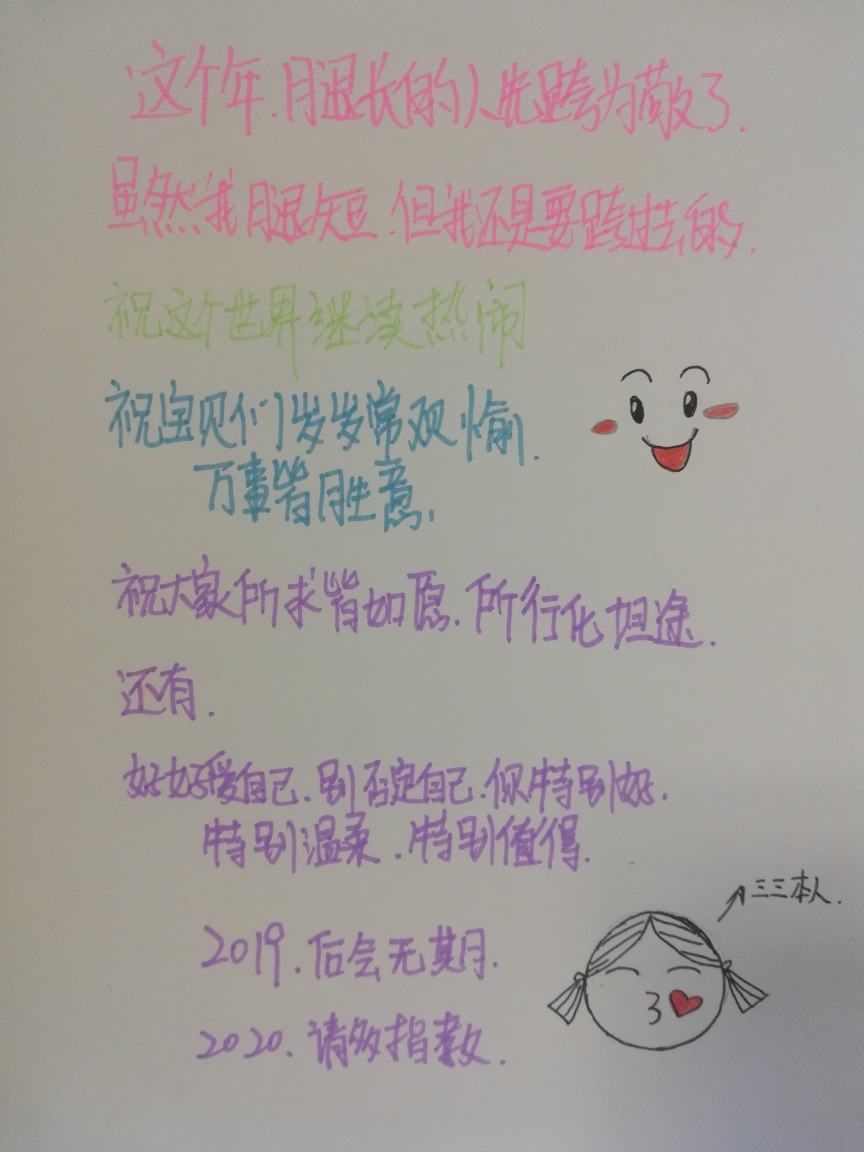 这个年.腿长的人先跨为敬了.
虽然我腿短.但我还是要跨过去的.
祝这个世界继续热闹
祝宝贝们岁岁常欢愉.
万事皆胜意.
祝大家所求皆如愿.所行化坦途.
还有.
好好爱自己.别否定自己.你特别好.
特别温柔.特别值得.
三三本人.
2019.后会无期.
2020.请多指教.